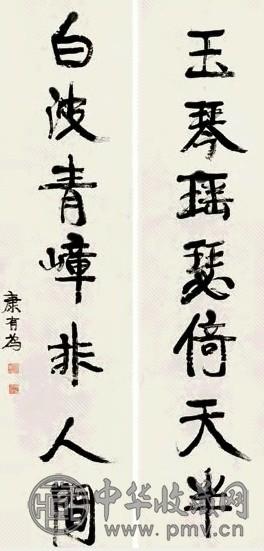 玉琴瑶瑟倚天半
白波青嶂非人間
康有為
中华收藏网
www.pmv.cn